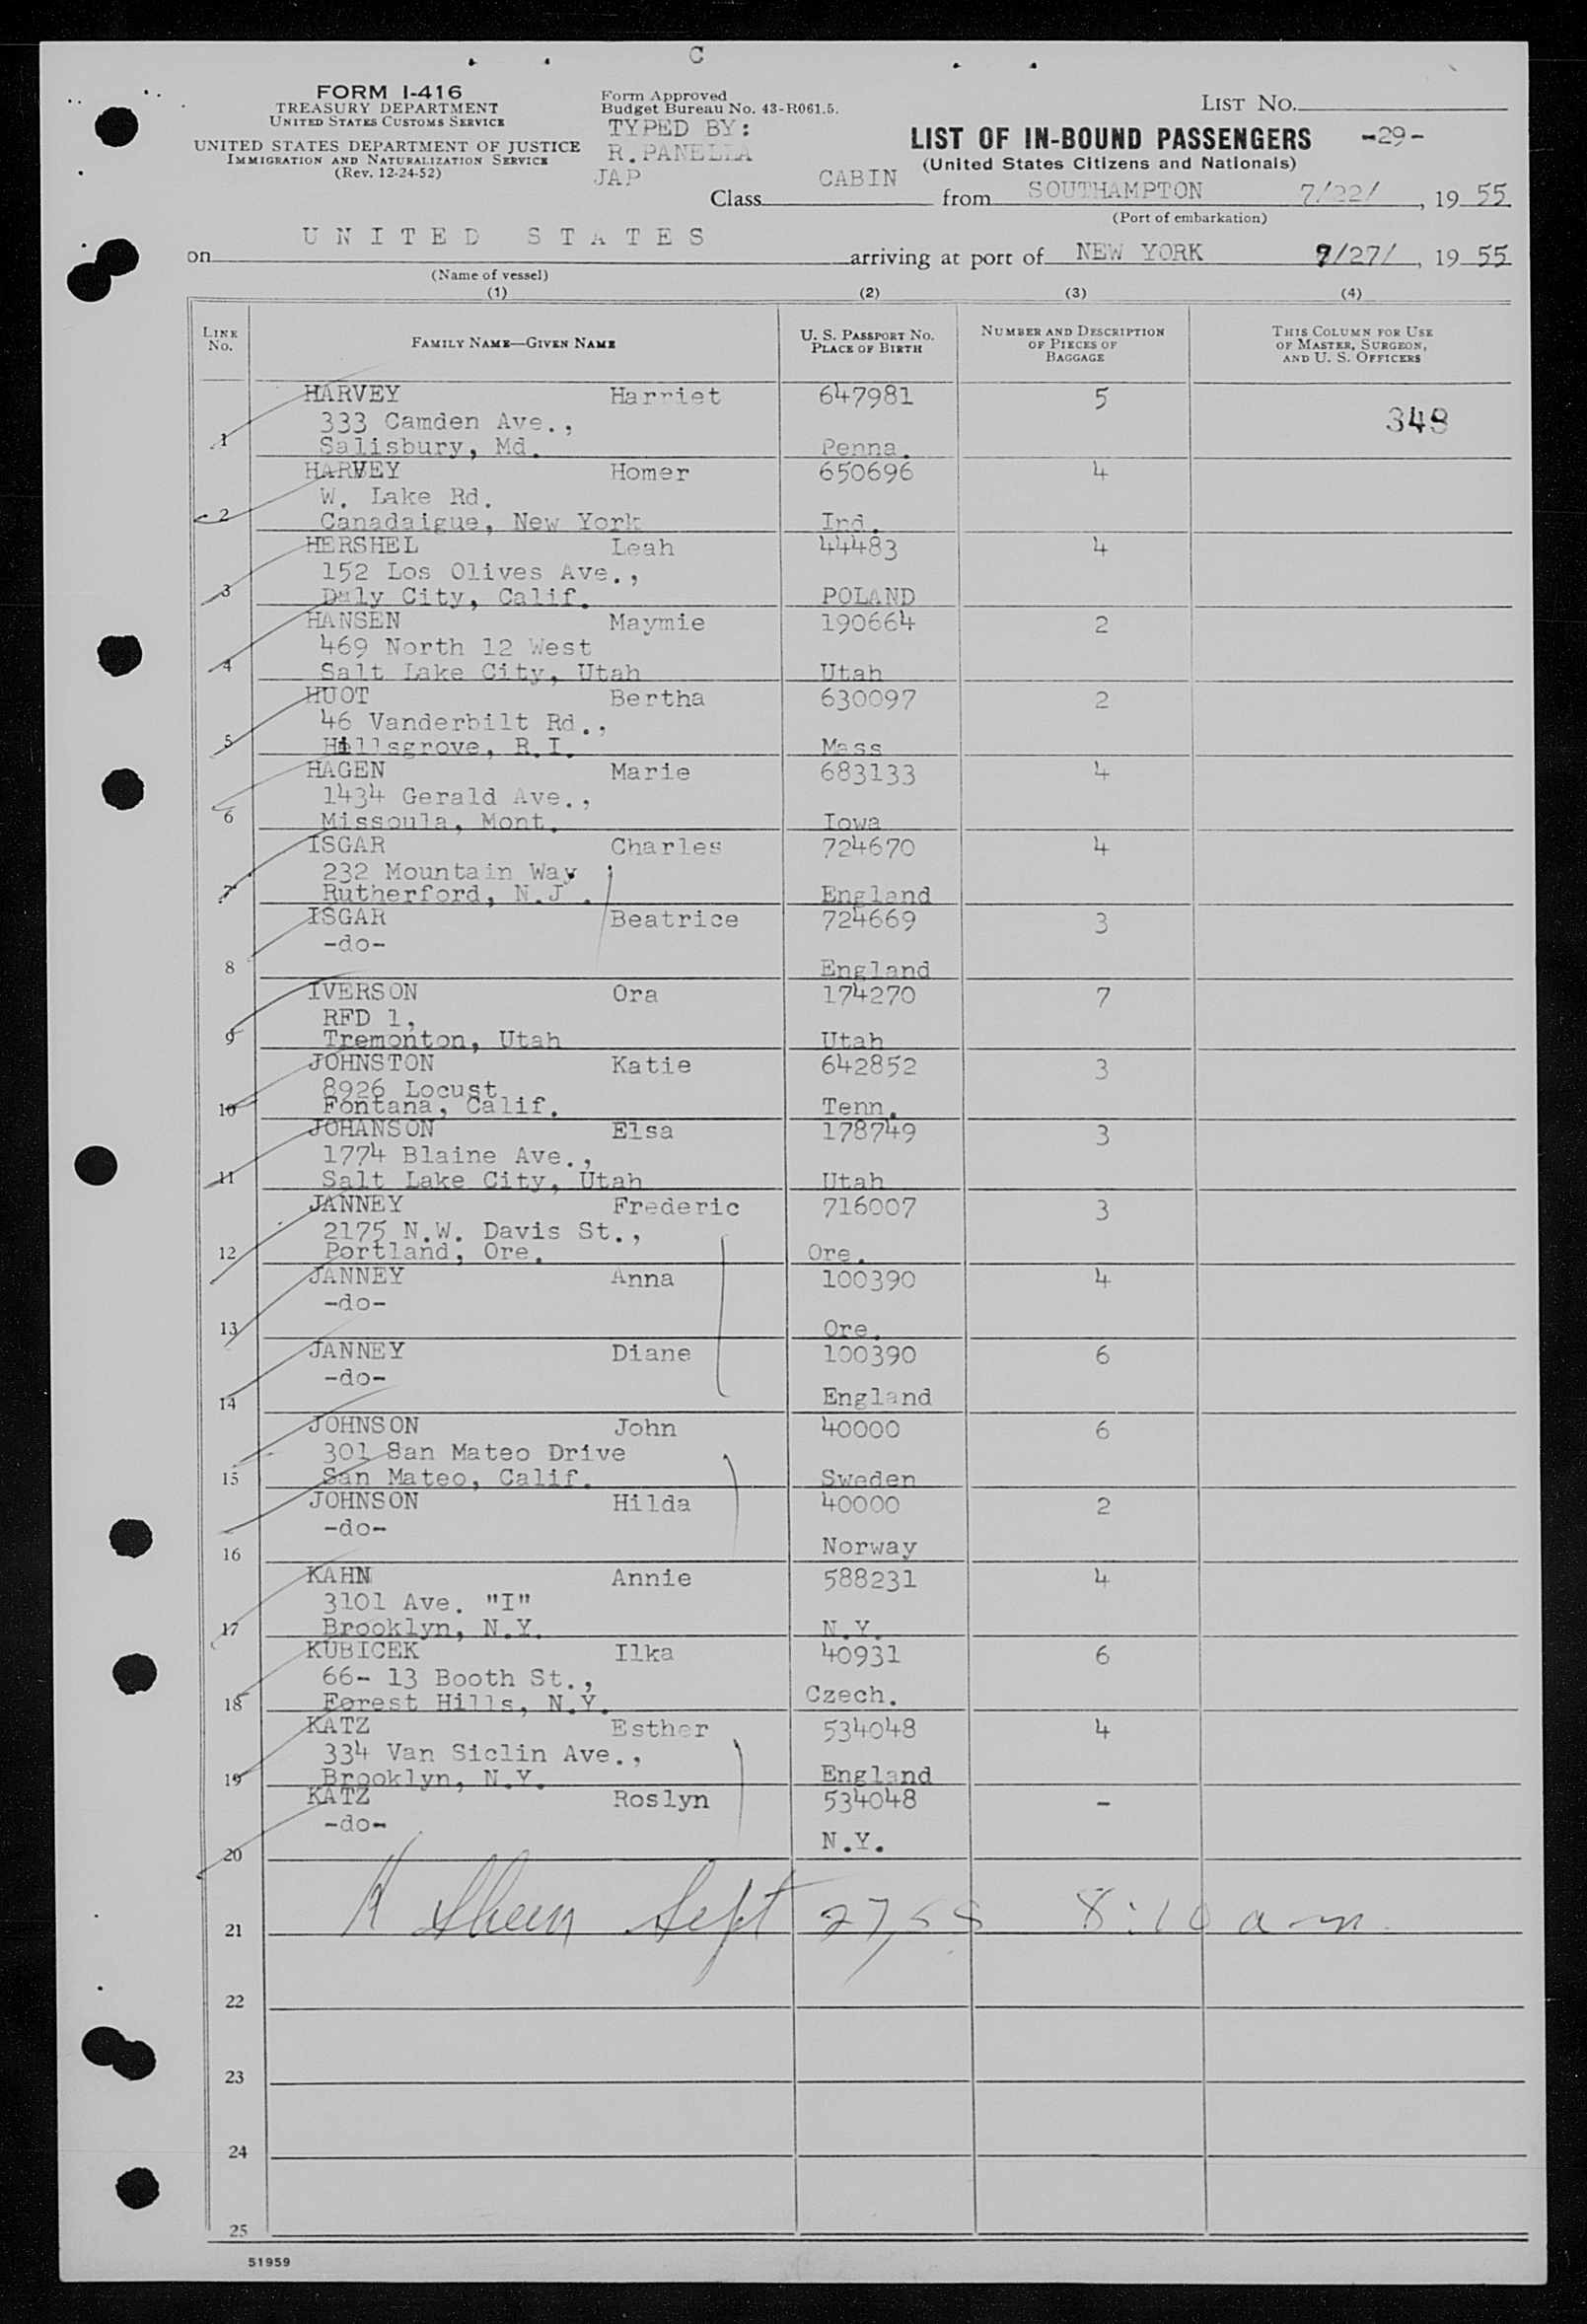 C
FORM I-416
TREASURY DEPARTMENT
UNITED STATES CUSTOMS SERVICE
UNITED STATES DEPARTMENT OF JUSTICE
IMMIGRATION AND NATURALIZATION SERVICE
(Rev. 12-24-52)
Form Approved
Budget Bureau No. 43-R061.5.
TYPED BY:
R.PANELLA
JAP
LIST NO.
LIST OF IN-BOUND PASSENGERS -29-
(United States Citizens and Nationals)
Class CABIN from SOUTHAMPTON 7/22/, 19 55
(Port of embarkation)
on UNITED STATES arriving at port of NEW YORK 9/27/, 19 55
(Name of vessel)
(1) (2) (3) (4)
LINE NO. FAMILY NAME—GIVEN NAME U. S. PASSPORT NO. PLACE OF BIRTH NUMBER AND DESCRIPTION OF PIECES OF BAGGAGE THIS COLUMN FOR USE OF MASTER, SURGEON, AND U. S. OFFICERS
HARVEY Harriet 647981 5
333 Camden Ave., 348
1 Salisbury, Md. Penna.
HARVEY Homer 650696 4
W. Lake Rd.
2 Canadaigue, New York Ind.
HERSHEL Leah 44483 4
152 Los Olives Ave.,
3 Daly City, Calif. POLAND
HANSEN Maymie 190664 2
469 North 12 West
4 Salt Lake City, Utah Utah
HUOT Bertha 630097 2
46 Vanderbilt Rd.,
5 Hillsgrove, R.I. Mass
HAGEN Marie 683133 4
1434 Gerald Ave.,
6 Missoula, Mont. Iowa
ISGAR Charles 724670 4
232 Mountain Way
7 Rutherford, N.J. England
ISGAR Beatrice 724669 3
-do-
8 England
IVERSON Ora 174270 7
RFD 1,
9 Tremonton, Utah Utah
JOHNSTON Katie 642852 3
8926 Locust
10 Fontana, Calif. Tenn.
JOHANSON Elsa 178749 3
1774 Blaine Ave.,
11 Salt Lake City, Utah Utah
JANNEY Frederic 716007 3
2175 N.W. Davis St.,
12 Portland, Ore. Ore.
JANNEY Anna 100390 4
-do-
13 Ore.
JANNEY Diane 100390 6
-do-
14 England
JOHNSON John 40000 6
301 San Mateo Drive
15 San Mateo, Calif. Sweden
JOHNSON Hilda 40000 2
-do-
16 Norway
KAHN Annie 588231 4
3101 Ave. "I"
17 Brooklyn, N.Y. N.Y.
KUBICEK Ilka 40931 6
66- 13 Booth St.,
18 Forest Hills, N.Y. Czech.
KATZ Esther 534048 4
334 Van Siclin Ave.,
19 Brooklyn, N.Y. England
KATZ Roslyn 534048 -
-do-
20 N.Y.
21 Sept 27, 55 8:10 a m
22
23
24
25
51959